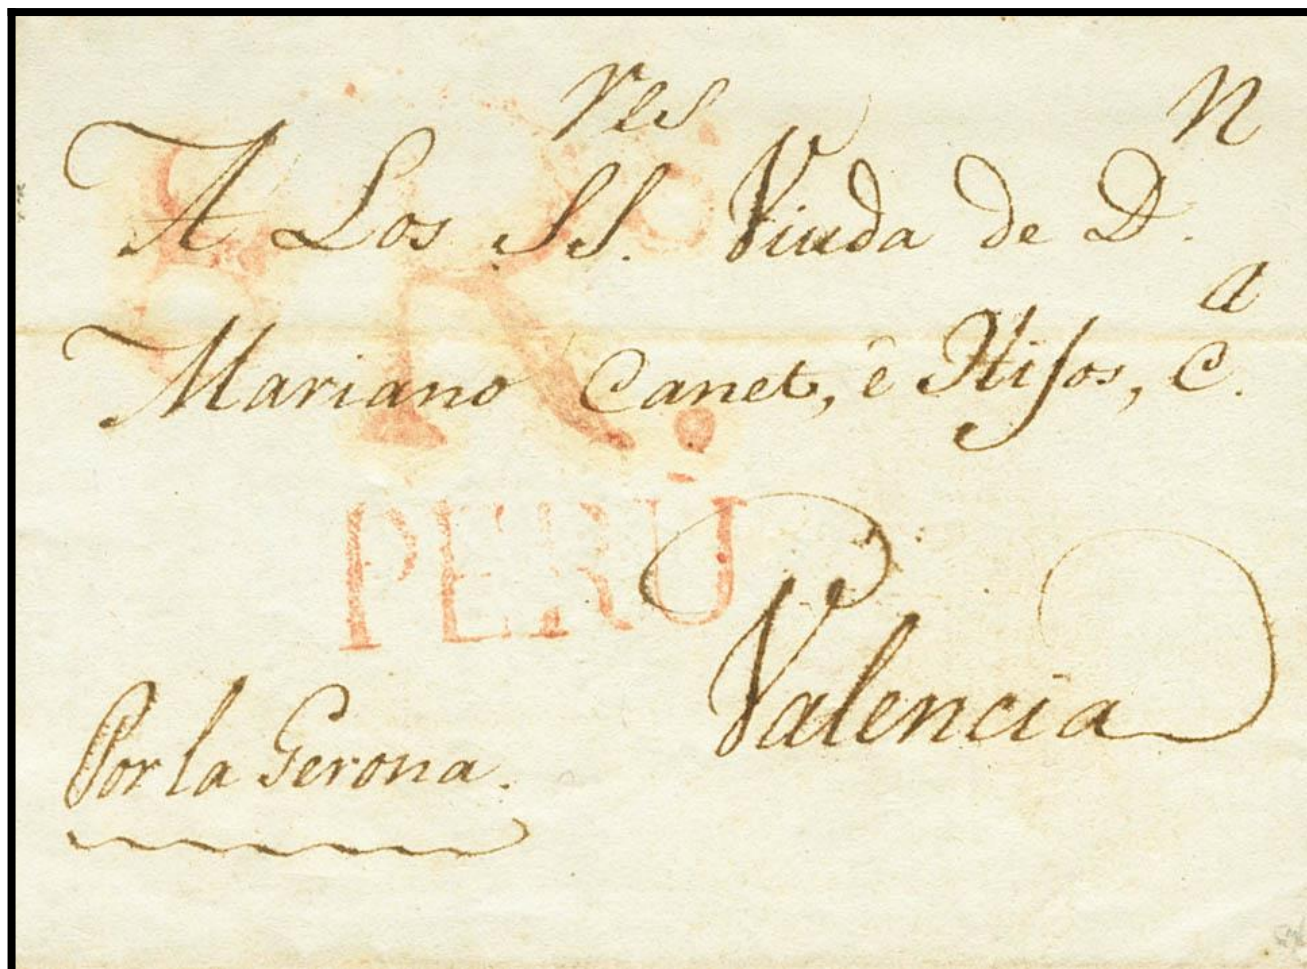 A Los SS.res Viuda de D.n
Mariano Canet, è Hijos, C.a
R.
PERÚ
Valencia
Por la Gerona.